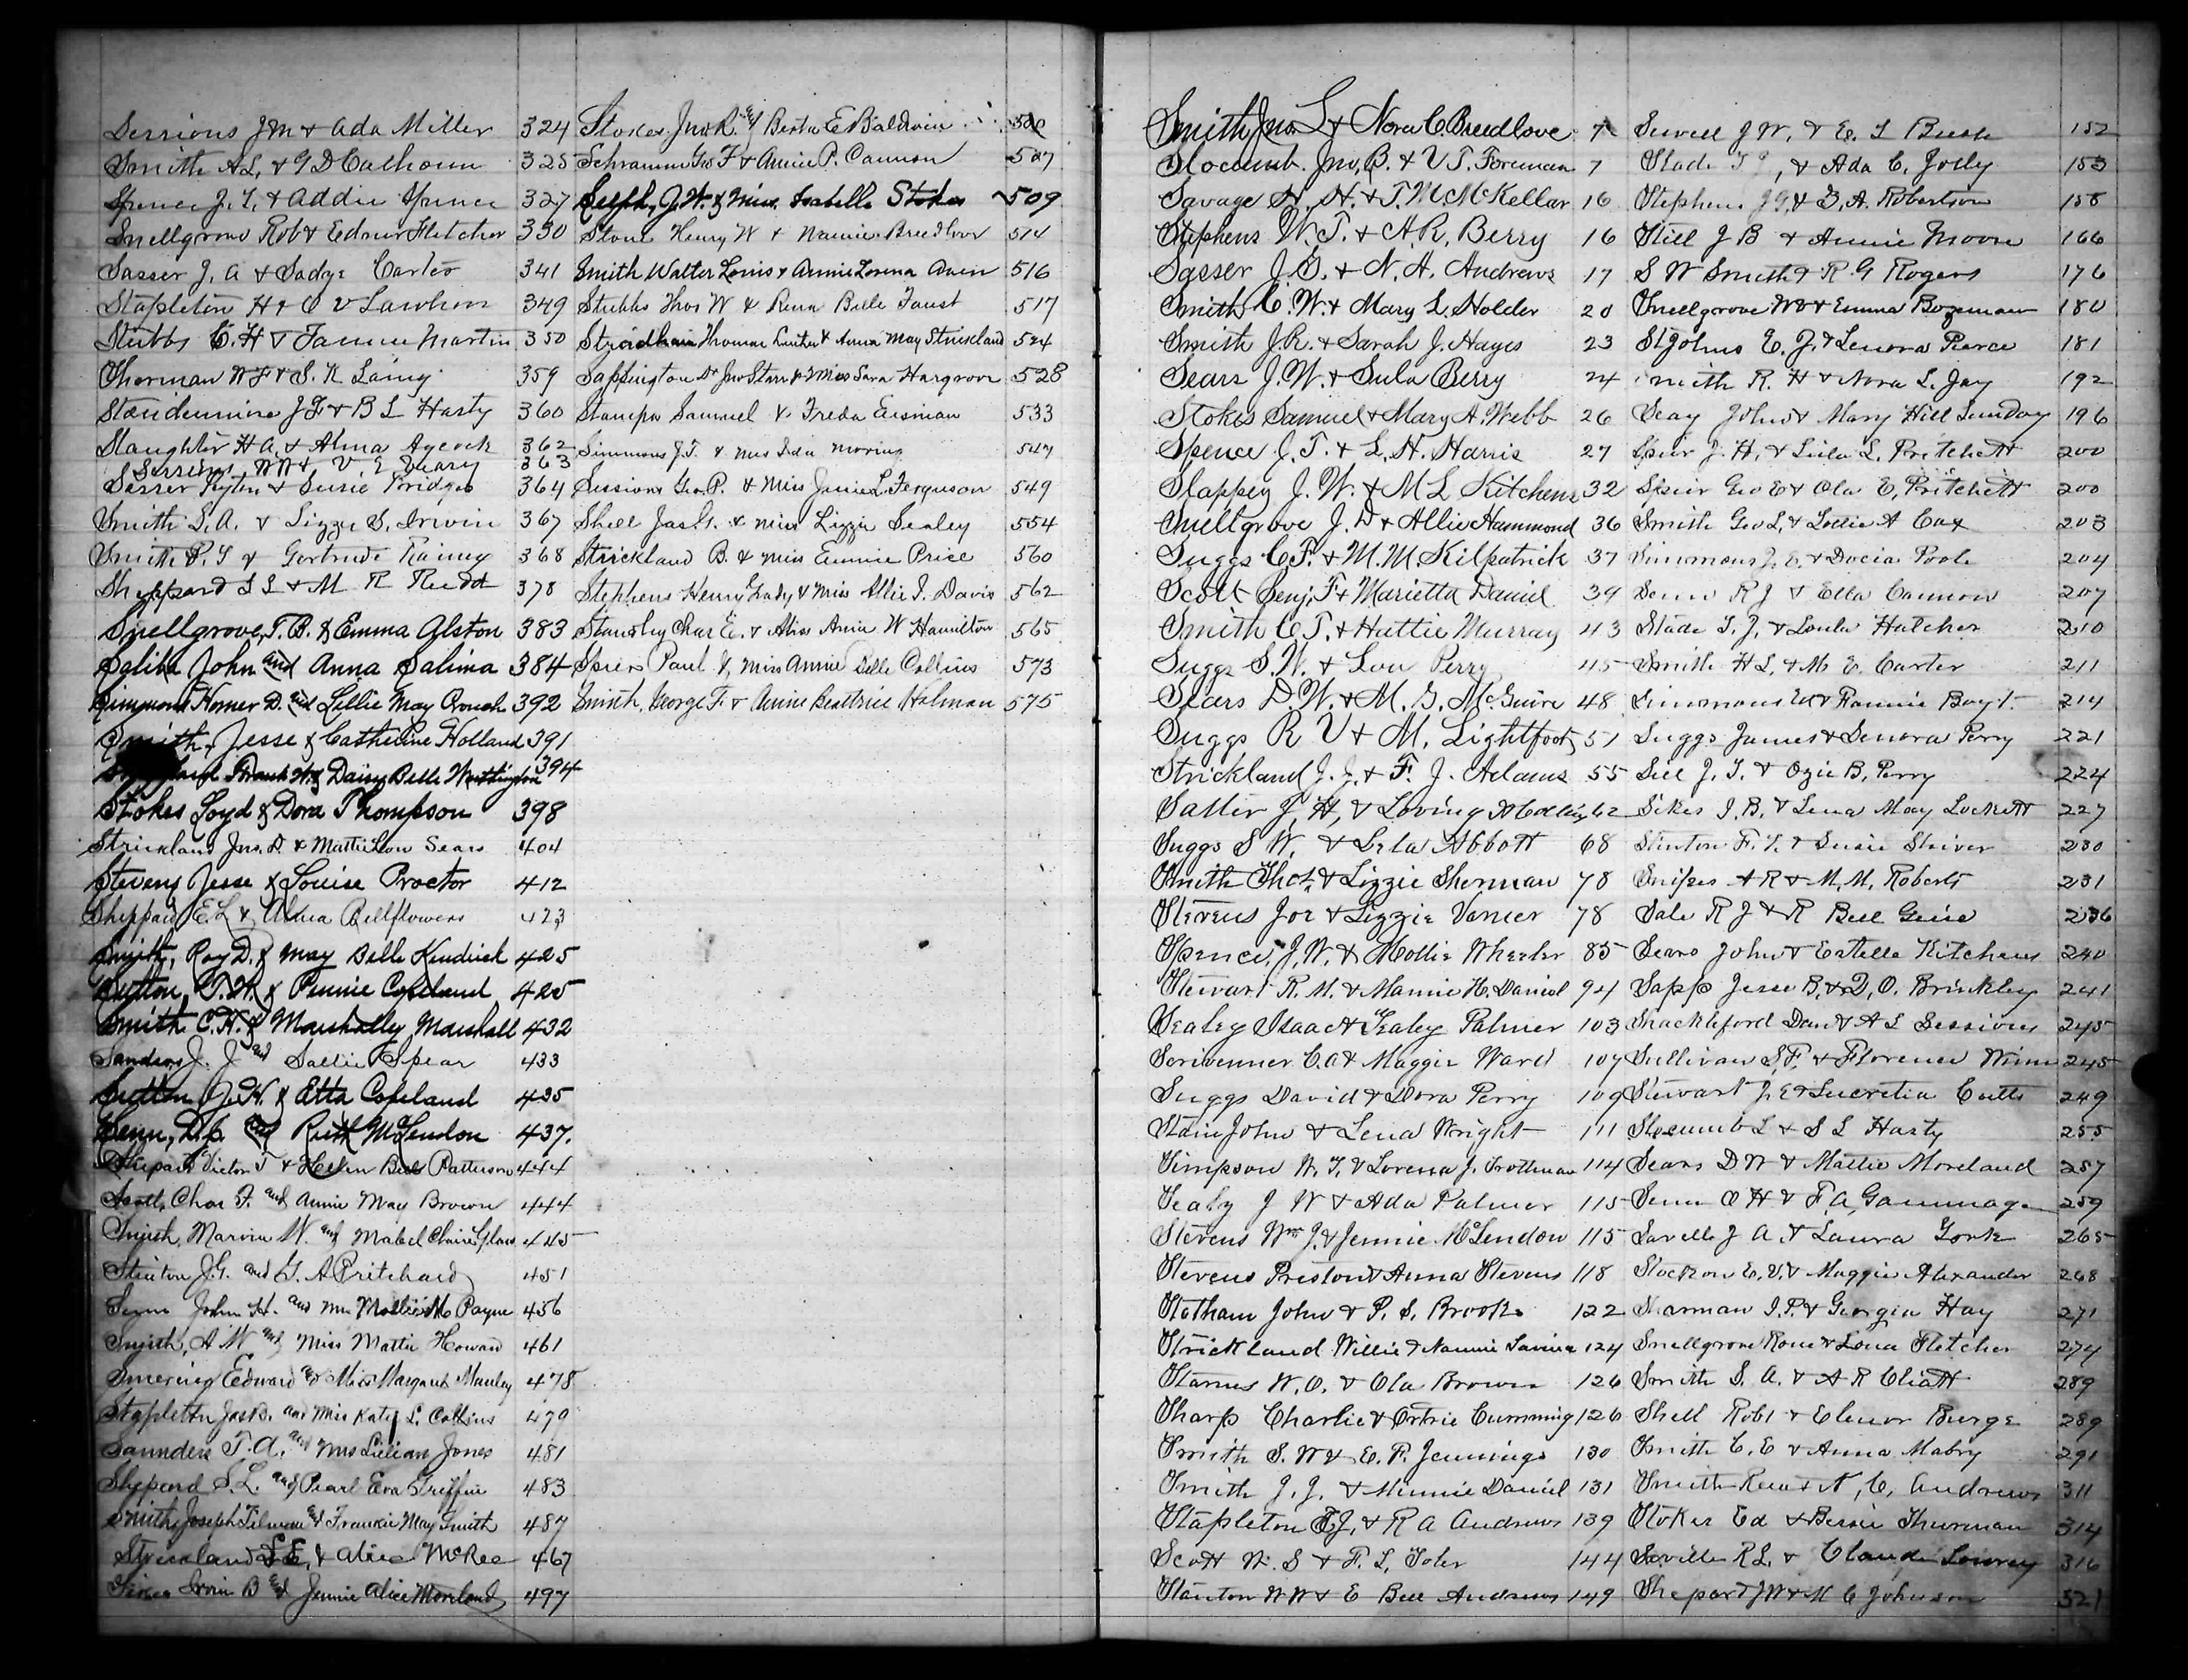 Sessions J M & Ada Miller 324
Smith A L & G D Calhoun 325
Spence J. T. & Addie Spence 327
Snellgrove Rob & Fletcher 330
Sasser J. A & Sadye Carter 341
Stapleton H & C V Lawhon 349
Stubbs C. H & Fannie Martin 350
Sherman W F & S. R Laing 359
J F & B L Hasty 360
Slaughter H A. & Alma Aycock 362
Sessions W N & V. E Geary 363
Sasser & Susie Bridges 364
Smith S. A. & Lizzie S. Irwin 367
Smith P. T & Gertrude Rainey 368
Sheppard S L & M R Rudd 378
Snellgrove, T. B. & Emma Alston 383
Saliba John and Anna Salima 384
Simmons Homer D. and Lillie May Crouch 392
Smith, Jesse & Catherine Holland 391
Frank W. & Daisy Belle Worthington 394
Stokes Loyd & Dora Thompson 398
Strickland Jno. D. & Mattie Lou Sears 404
Stevens Jesse & Louise Proctor 412
Sheppard E. L & Alma Bellflowers 423
Smith, Roy D. & May Belle Kendrick 425
Sutton, T. W. & Pennie Copeland 425
Smith C. H. & Marshally Marshall 432
Sanders J. J and Sallie Spear 433
Sutton J. H. & Etta Copeland 435
Senn, D. C. and Ruth McLendon 437.
Shepard Victor T & Helen Bell Patterson 444
Scott, Chas F. and Annie May Brown 444
Smith, Marvin W. and Mabel Claire Glass 445
Stinton J. G. and G. A Pritchard 451
Senn John H. and Mrs Mollie M Payne 456
Smith, A W and Miss Mattie Howard 461
Edward and Miss Margaret Manley 478
Stapleton Jas B. and Miss Katy L. Collins 479
Saunders T. A. and Mrs Lillian Jones 481
Shepard S. L. and Pearl Eva Griffin 483
Smith, Joseph Tilman and Frankie May Smith 487
Strickland L E. & Alice McRee 467
Irvin B and Jennie Alice Moreland 497
Stokes Jno R. and Berta E Baldwin 500
Schramm Geo F & Annie P. Cannon 507
Selph, J. W. & Miss. Isabelle Stokes 509
Stone Henry W & Nannie Breedlove 514
Smith Walter Louis & Annie Lorena Avin 516
Stubbs Thos W & Rena Belle Faust 517
Stridham Thomas Luther & Anna May Strickland 524
Sappington Dr Jno Starr & Miss Sara Hargrove 528
Stampa Samuel & Freda Eisman 533
Simmons J. T. & Mrs Ida Moring 547
Sessions Geo. P. & Miss Janie L. Ferguson 549
Shell Jas H. & Miss Lizzie Sealey 554
Strickland B. & Miss Eunnie Price 560
Stephens Henry Grady & Miss Allie I. Davis 562
Standley Char E. & Miss Annie W Hamilton 565
Spiers Paul & Miss Annie Belle Collins 573
Smith, George F. & Annie Beattrice Holman 575
Smith Jno L & Nora C. Breedlove 7
Slocumb Jno, B. & V. T. Foreman 7
Savage H. H. & T. M McKellar 16
Stephens W. T. & A. R. Berry 16
Sasser J. G. & N. A. Andrews 17
Smith C. W. & Mary L. Holder 20
Smith J. R. & Sarah J. Hayes 23
Sears J. W. & Eula Berry 24
Stokes Samuel & Mary A. Webb 26
Spence J. T. & L. H. Harris 27
Slappey J. W. & M L Kitchens 32
Snellgrove J. D & Allie Hammond 36
Suggs C. F. & M. M. Kilpatrick 37
Scott Benj. F & Marietta Daniel 39
Smith C. T. & Hattie Murray 43
Suggs S. W. & Lou Perry 45
Sears D. W. & M. G. McGuire 48
Suggs R V & M. Lightfoot 51
Strickland J. J. & F. J. Adams 55
Salter J, H, & Loving 62
Suggs S W. & Lela Abbott 68
Smith Thos. & Lizzie Sherman 78
Stevens Joe & Lizzie Varner 78
Spence, J. W. & Mollie Wheeler 85
Stewart R. M. & Mamie H. Daniel 94
Sealey Isaac & Sealey Palmer 103
Scrivenner C. A & Maggie Ward 107
Suggs David & Dora Perry 109
Stain John & Lena Wright 111
Simpson W. T. & Lorena J. Trottman 114
Sealy J W & Ada Palmer 115
Stevens Wm J. & Jennie McLendon 115
Stevens Preston & Anna Stevens 118
Statham John & P. S. Brooks 122
Strickland Willie & Nannie 124
Starnes W. O. & Ola Brown 126
Sharp Charlie & Cumming 126
Smith S. W & E. P. Jennings 130
Smith J. J. & Minnie Daniel 131
Stapleton E J. & R A Andrews 139
Scott W. S & F. L. Toler 144
Stanton W W & E Bell Andrews 149
Sewell J W. & E. T Bush 152
Slade & Ada C. Jolly 153
Stephens J G. & A. Robertson 158
Still J B & Annie Moore 166
S W Smith & R. G Rogers 176
Snellgrove W D & Emma Bozeman 180
StJohns E. J. & Lenora Pierce 181
Smith R. H & Nora L. Jay 192
Seay John & Mary Hill Sunday 196
Speir J. H. & Lula L. Pritchett 200
Speir Geo E & Ola E. Pritchett 200
Smith Geo L. & Lollie A Cox 203
Simmons J. E. & Docia Poole 204
Senn R J & Ella Cannon 207
Slade T. J. & Loula Hatcher 210
Smith H L. & M. E. Carter 211
Simmons & Fannie Boyt. 214
Suggs James & Lenora Perry 221
Sell J. T. & Ozie B. Perry 224
Sikes J. B. & Lena May Lockett 227
Stinton F. T. & Susie Shiver 230
Snipes A R & M. M. Roberts 231
Sale R J & R Bell 236
Sears John & Estelle Kitchens 240
Sapp Jesse B. & D. O. Brinkley 241
Shackleford Dan & A L Sessions 245
Sullivan S. F. & Florence Winn 245
Stewart J. E & Lucretia Cutts 249
Slocumb L & S L Hasty 255
Sears D W & Mattie Moreland 257
Senn O H & F. A. Gammage 259
Saville J A. & Laura York 265
E. V. & Maggie Alexander 268
Sharman I. P. & Georgia Hay 271
Snellgrove & Lona Fletcher 274
Smith S. A. & A R Cliatt 289
Shell Robt & Elenor Burge 289
Smith C. E & Anna Mabry 291
Smith & N, C, Andrews 311
Stokes Ed & Bessie Thurman 314
Saville R L. & Claude Lowrey 316
Shepard J W & M C Johnson 321